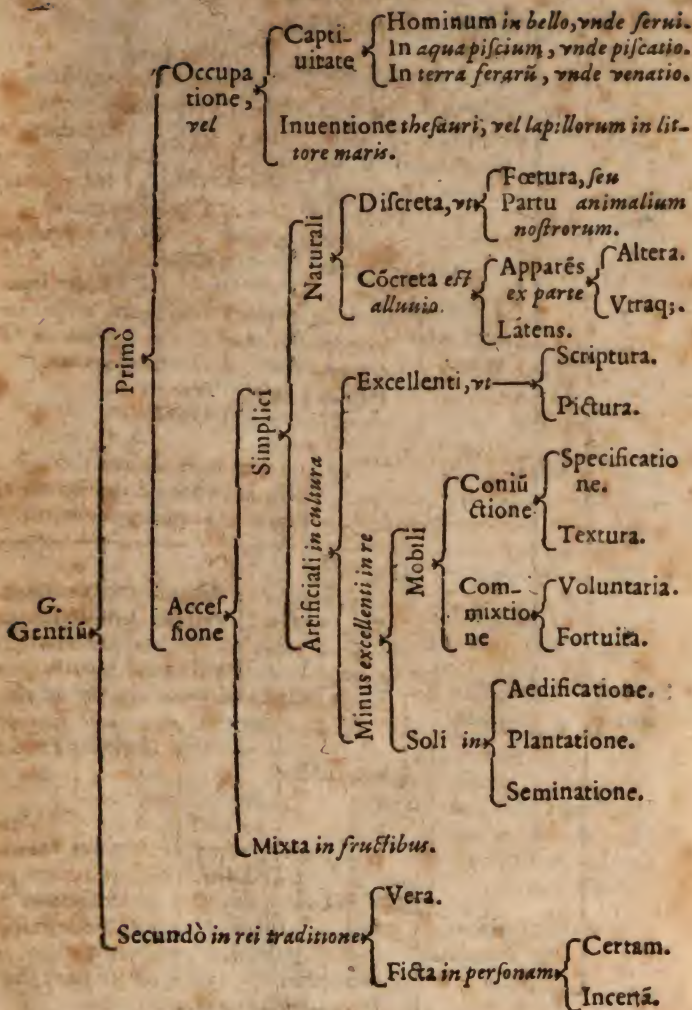 Capti-
uitate
Hominum in bello, vnde ſerui.
In aqua piſcium, vnde piſcatio.
In terra ferarũ, vnde venatio.
Occupa
tione,
vel
Inuentione theſauri, vel lapillorum in lit-
tore maris.
Primò
Naturali
Diſcreta, vt
Fœtura, ſeu
Partu animalium
noſtrorum.
Cõcreta eſt
alluuio.
Apparẽs
ex parte
Altera.
Vtraq;.
Látens.
Simplici
Artificiali in cultura
Excellenti, vt
Scriptura.
Pictura.
Minus excellenti in re
Mobili
Coniũ
ctione
Specificatio
ne.
Textura.
Com-
mixtio
ne
Voluntaria.
Fortuita.
G.
Gentiũ
Acceſ
ſione
Soli in
Aedificatione.
Plantatione.
Seminatione.
Mixta in fructibus.
Secundò in rei traditione
Vera.
Ficta in perſonam
Certam.
Incertã.